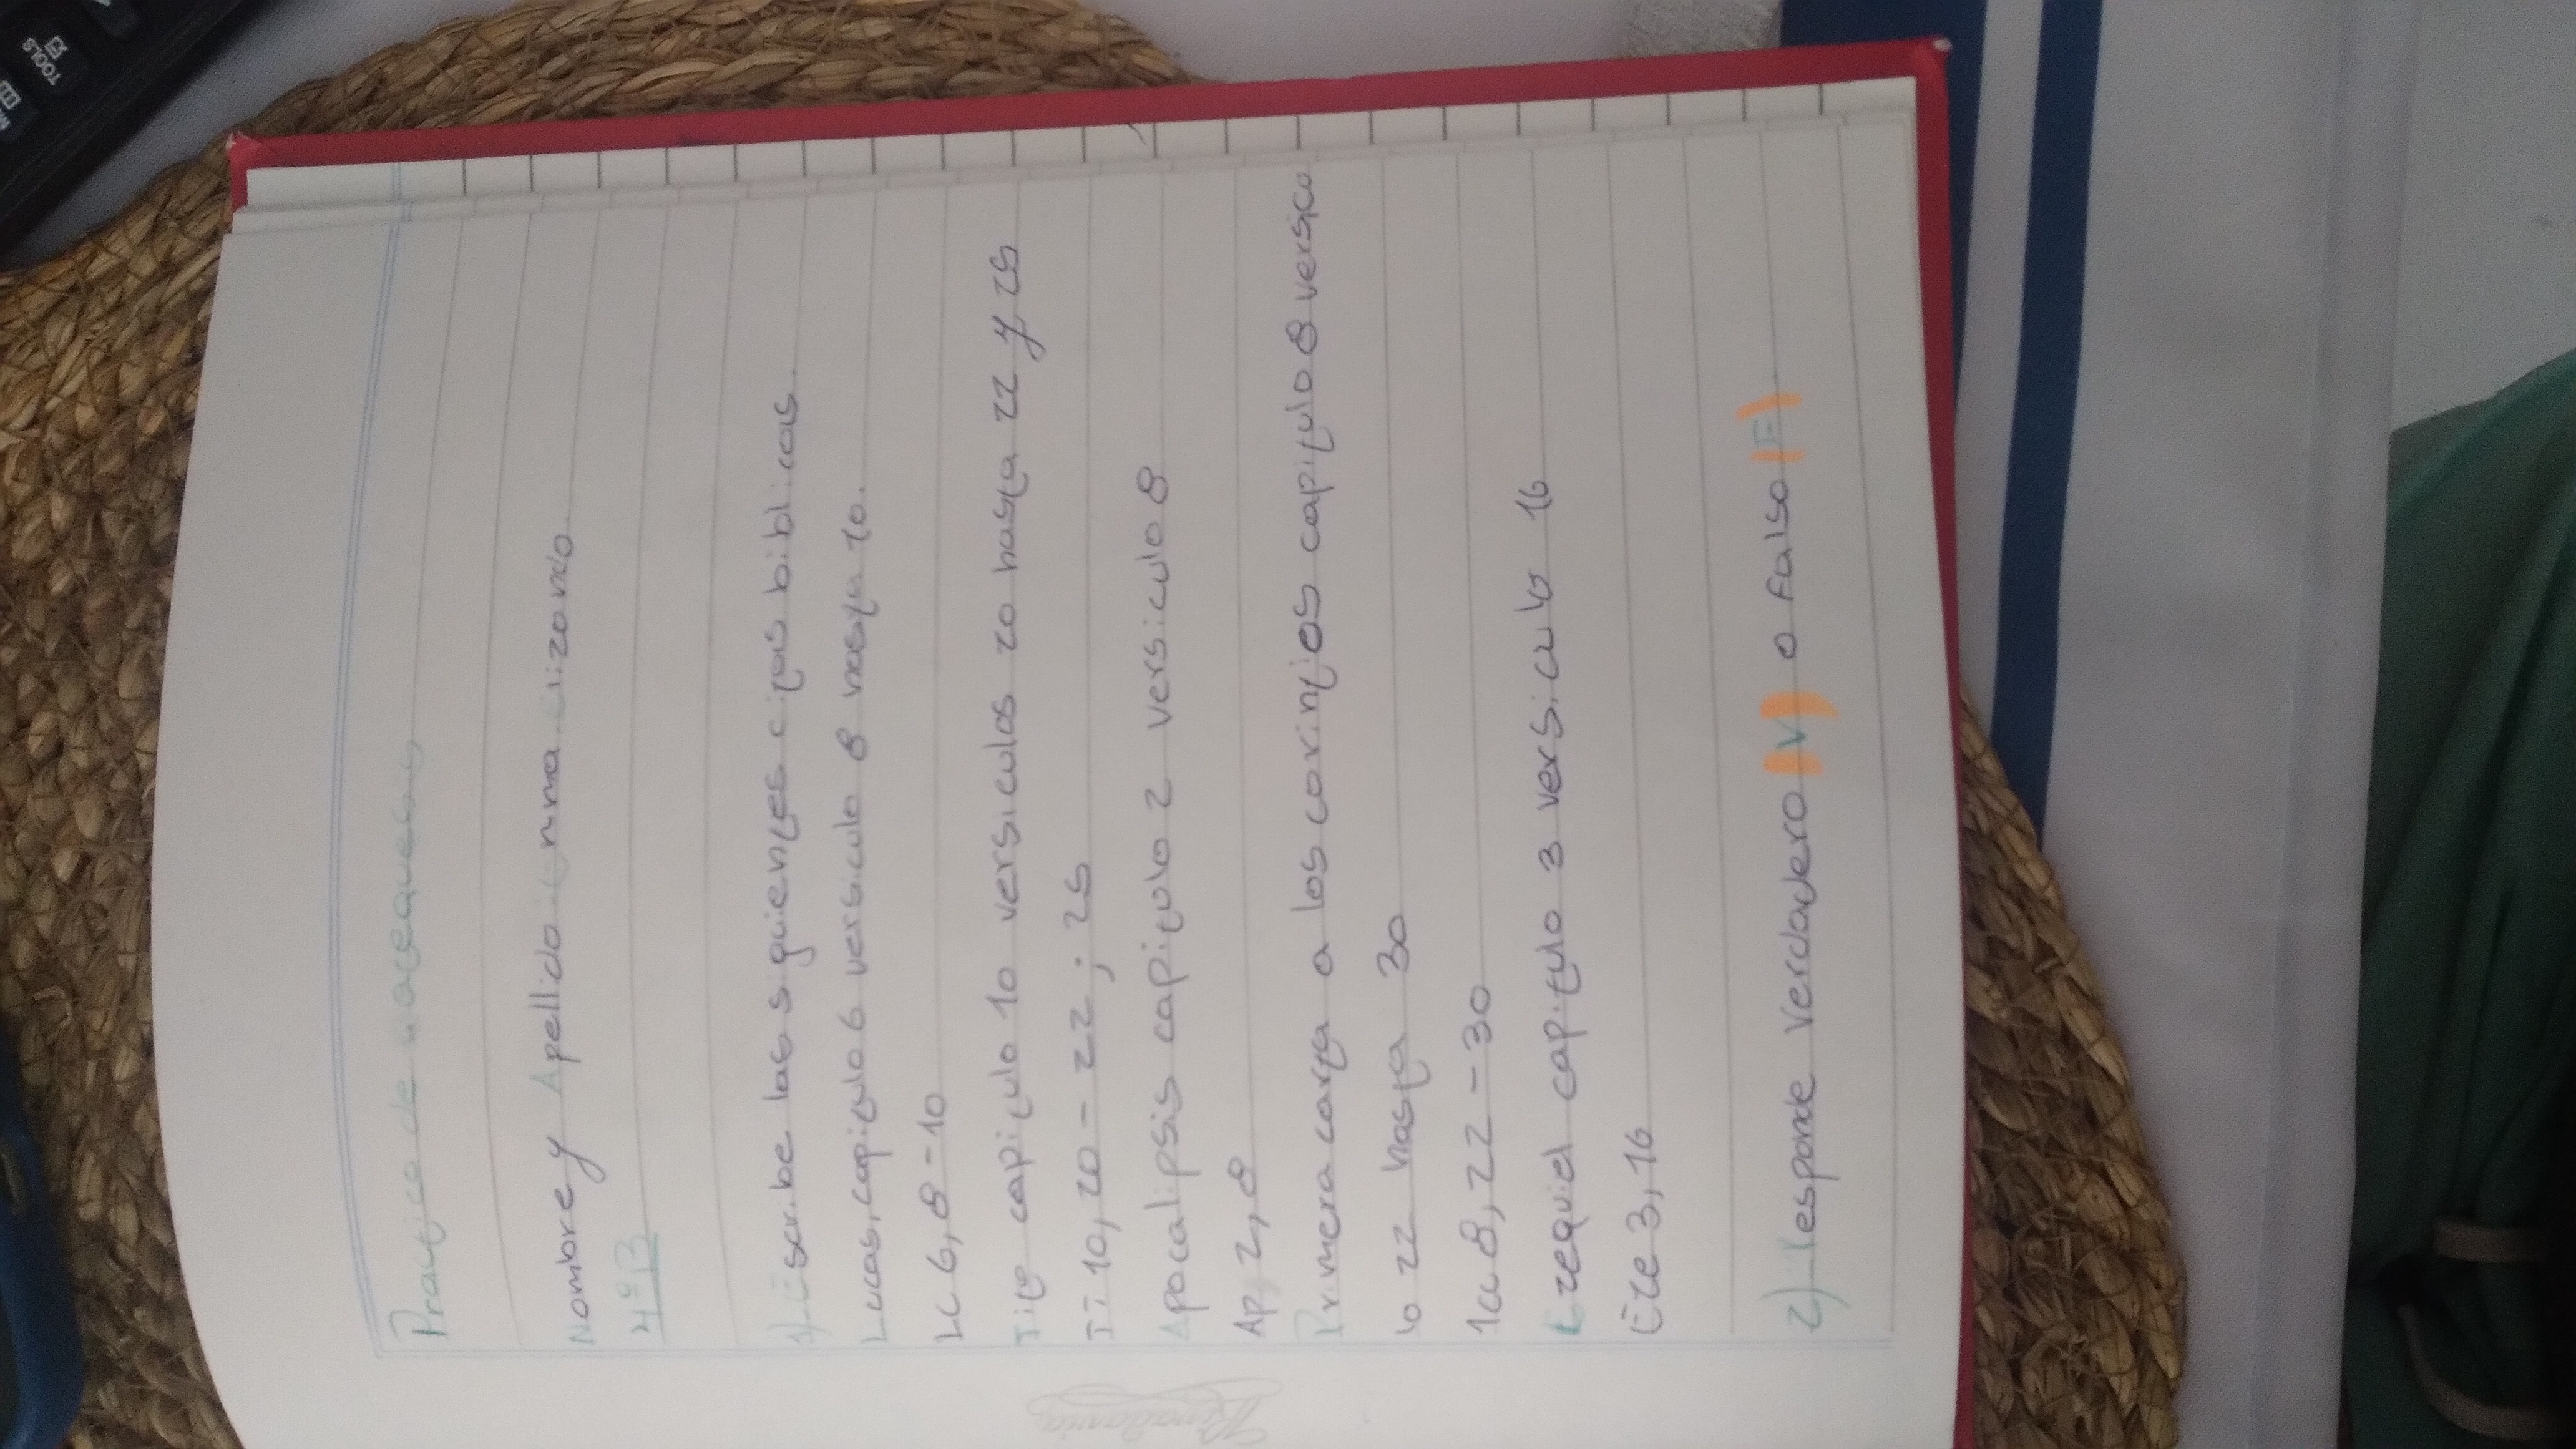 Practica de
Nombre y Apellido: Emma Elizondo.
4°B
1) Escribe las siguientes citas biblicas.
Lucas, capitulo 6 versiculo 8 hasta 10.
LC 6, 8-10
Tito capitulo 10 versiculos 20 hasta 22 y 25
TT 10, 20-22; 25
Apocalipsis capitulo 2 versiculo 8
AP, 2, 8
Primera carta a los corintios capitulo 8 versicu
lo 22 hasta 30
1a 8, 22-30
Ezequiel capitulo 3 versiculo 16
Eze 3, 16
2) Responde Verdadero (V) o Falso (F)
Rivadavia
TOOLS